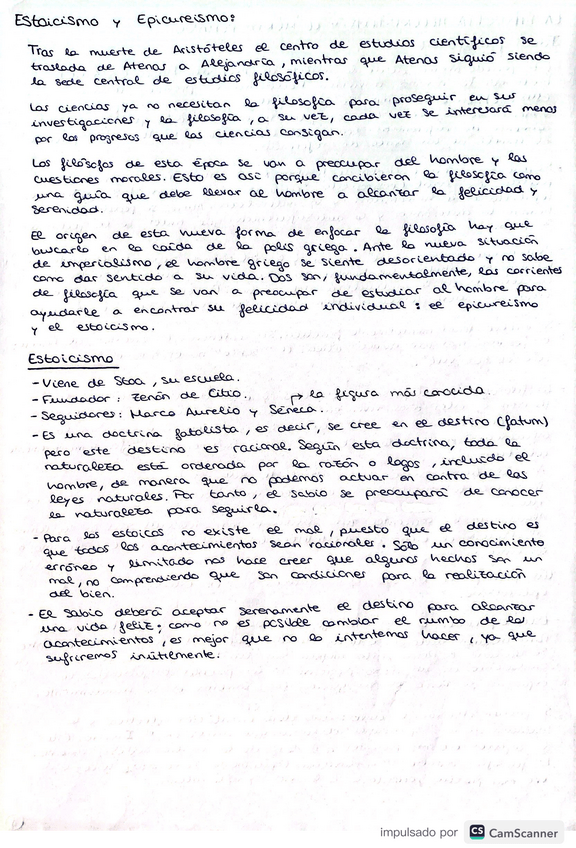 Estoicismo y Epicureismo:
Tras la muerte de Aristóteles el centro de estudios científicos se
traslada de Atenas a Alejandría, mientras que Atenas siguió siendo
la sede central de estudios filosóficos.
Las ciencias ya no necesitan la filosofía para proseguir en sus
investigaciones y la filosofía, a su vez, cada vez se interesará menos
por los progresos que las ciencias consigan.
Los filósofos de esta época se van a preocupar del hombre y las
cuestiones morales. Esto es así porque concibieron la filosofía como
una guía que debe llevar al hombre a alcanzar la felicidad y
serenidad.
El origen de esta nueva forma de enfocar la filosofía hay que
buscarlo en la caída de la polis griega. Ante la nueva situación
de imperialismo, el hombre griego se siente desorientado y no sabe
como dar sentido a su vida. Dos son, fundamentalmente, las corrientes
de filosofía que se van a preocupar de estudiar al hombre para
ayudarle a encontrar su felicidad individual: el epicureismo
y el estoicismo.
Estoicismo
- Viene de Stoa, su escuela.
- Fundador: Zenón de Citio.
→ la figura más conocida.
- Seguidores: Marco Aurelio y Séneca.
- Es una doctrina fatalista, es decir, se cree en el destino (fatum)
pero este destino es racional. Según esta doctrina, toda la
naturaleza está ordenada por la razón o logos, incluido el
hombre, de manera que no podemos actuar en contra de las
leyes naturales. Por tanto, el sabio se preocupará de conocer
la naturaleza para seguirla.
- Para los estoicos no existe el mal, puesto que el destino es
que todos los acontecimientos sean racionales. Sólo un conocimiento
erróneo y limitado nos hace creer que algunos hechos son un
mal, no comprendiendo que son condiciones para la realización
del bien.
- El sabio deberá aceptar serenamente el destino para alcanzar
una vida feliz; como no es posible cambiar el rumbo de los
acontecimientos, es mejor que no lo intentemos hacer, ya que
sufriremos inútilmente.
impulsado por CS CamScanner